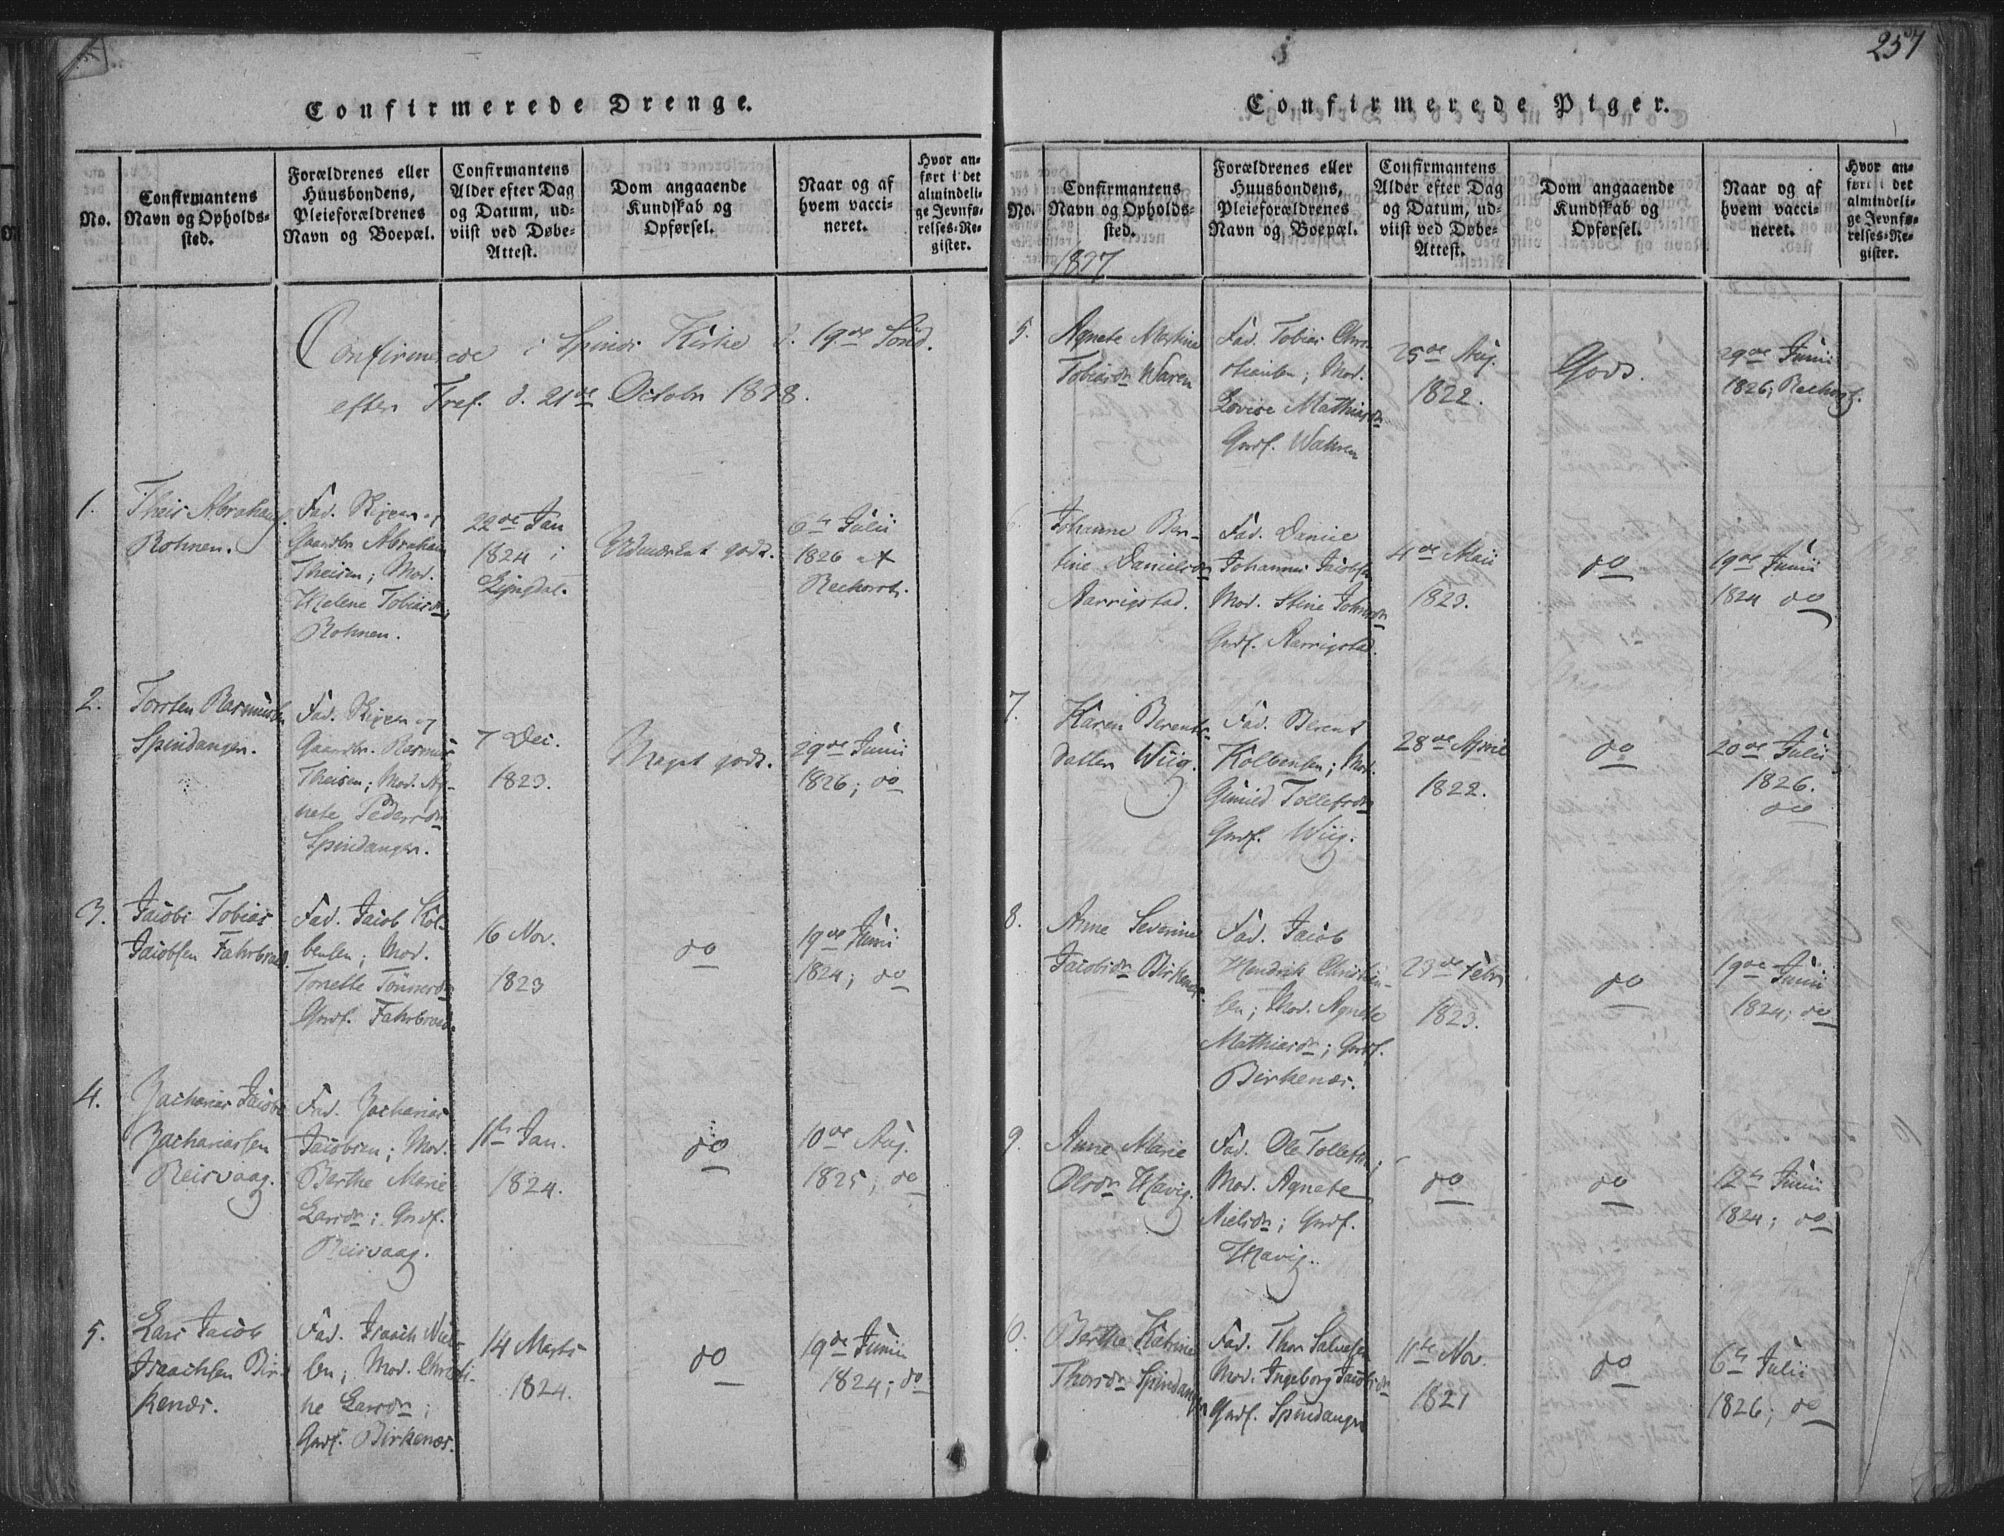 257
Confirmerede Drenge.
No.
Confirmantens
Navn og Opholds-
sted.
Forældrenes eller
Huusbondens,
Pleieforældrenes
Navn og Boepæl.
Confirmantens
Alder efter Dag
og Datum, ud-
viist ved Døbe-
Attest.
Dom angaaende
Kundskab og
Opførsel.
Naar og af
hvem vacci-
neret.
Hvor an-
ført i det
almindeli-
ge Jevnfø-
relses-Re-
gister.
Confirmerede i Spinds Kirke d. 19de Sønd.
efter Tref. d. 21de Octobr 1838.
1.
Theis Abrahams.
Rohnen.
Fad. Skipen og
Gaardbr Abraham
Theisen; Mod.
Helene Tobiasdn
Rohnen.
22de Jan
1824 i
Lyngdal.
Udmærket godt.
6te Julii
1826 af
Reichorst.
2.
Torsten Rasmussen
Spindangen.
Fad. Skipen og
Gaardbr. Rasmus
Theisen; Mod. Ag-
nete Pedersdn
Spindangen.
7 Dec.
1823.
Meget godt.
29de Junii
1826; do
3.
Jacob Tobias
Jacobsen Fahrbroed.
Fad. Jacob Kol-
bensen; Mod.
Tonette Tønnesdn
Grdf. Fahrbroed.
16 Nov.
1823
do
19de Junii
1824; do
4.
Zacharias Jacob
Zachariassen
Reisvaag.
Fad. Zacharias
Jacobsen; Mod.
Berthe Marie
Larsdn; Grdf.
Reisvaag.
11te Jan.
1824.
do
10de Aug.
1825; do
5.
Lars Jacob
Isaachsen Bir-
kenæs.
Fad. Isaach Niel-
sen; Mod. Christi-
ne Larsdn;
Grdf. Birkenæs.
14 Marts
1824.
do
19de Junii
1824; do
Confirmerede Piger.
No.
Confirmantens
Navn og Opholds-
sted.
Forældrenes eller
Huusbondens,
Pleieforældrenes
Navn og Boepæl.
Confirmantens
Alder efter Dag
og Datum, ud-
viist ved Døbe-
Attest.
Dom angaaende
Kundskab og
Opførsel.
Naar og af
hvem vacci-
neret.
Hvor an-
ført i det
almindeli-
ge Jevnfø-
relses-Re-
gister.
1837
5.
Agnete Martine
Tobiasdn Waren
Fad. Tobias Chri-
stiansen; Mod.
Lovise Mathiasdn
Grdf. Wahren
25de Aug.
1822.
Godt.
29de Junii
1826; Reichorst.
6.
Johanne Ber-
tine Danielsdn
Aarrigstad.
Fad. Daniel
Johannes Jacobsen
Mod. Stine Johnsdn
Grdf. Aarrigstad.
4de Maii
1823.
do
19de Junii
1824 do
7.
Karen Berents-
datter Wiig.
Fad. Berent
Kolbensen; Mod.
Gunild Tollefsdn
Grdf. Wiig.
28de April
1822.
do
20de Julii
1826.
do
8.
Anne Severine
Jacobsdn Birkenæs.
Fad. Jacob
Hendrik Christen-
sen; Mod. Agnete
Mathiasdn; Grdf.
Birkenæs.
23de Febr
1823.
do
19de Junii
1824; do
9.
Anne Marie
Olesdn Havig.
Fad. Ole Tollefsen;
Mod. Agnete
Nielsdn; Grdf.
Havig.
do
do
12te Junii
1824; do
0.
Berthe Katrine
Thorsdn Spindangen
Fad. Thor Salvesen
Mod. Ingeborg Jacobsdn
Grdf. Spindangen
11te Nov.
1821
do
6te Julii
1826; do